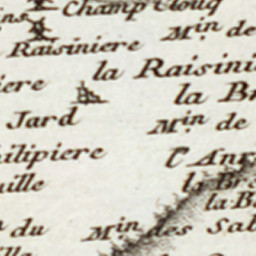 Champ Clouq
ins
Raisiniere Min de
la Raisini
iere
la Br
Jard Min de
ilipiere l'Anr
uille
la Bra
la B
du Min des Sab